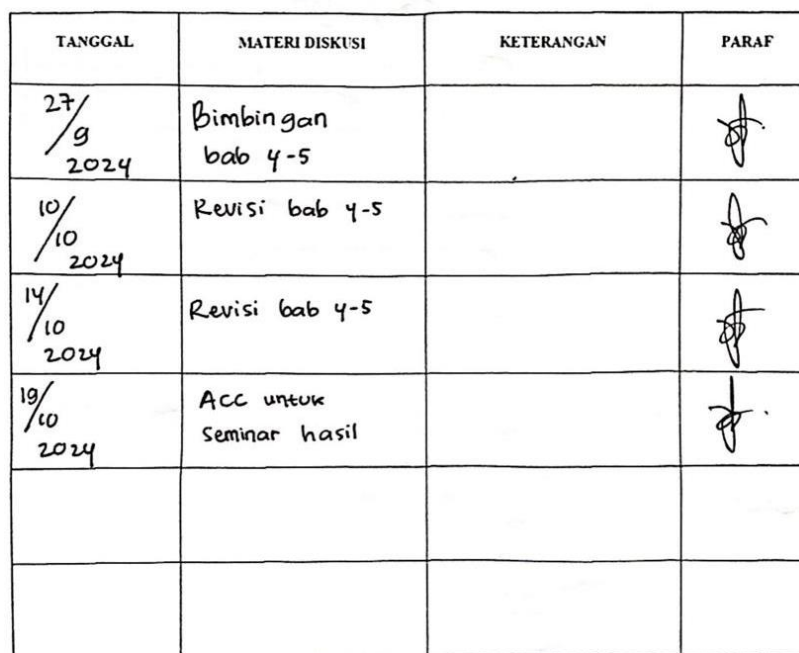 TANGGAL MATERI DISKUSI KETERANGAN PARAF
27/9 2024 Bimbingan
bab 4-5
10/10 2024 Revisi bab 4-5
14/10 2024 Revisi bab 4-5
19/10 2024 ACC untuk
seminar hasil